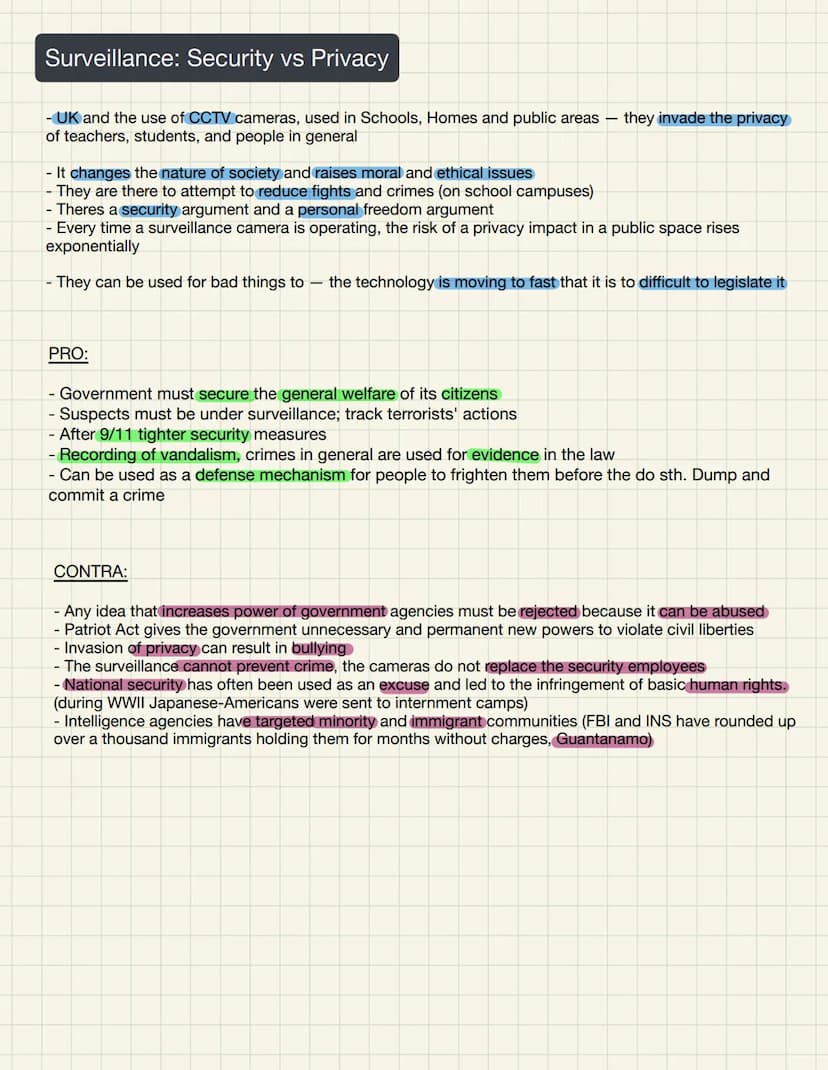 Surveillance: Security vs Privacy
- UK and the use of CCTV cameras, used in Schools, Homes and public areas — they invade the privacy
of teachers, students, and people in general
- It changes the nature of society and raises moral and ethical issues
- They are there to attempt to reduce fights and crimes (on school campuses)
- Theres a security argument and a personal freedom argument
- Every time a surveillance camera is operating, the risk of a privacy impact in a public space rises
exponentially
- They can be used for bad things to — the technology is moving to fast that it is to difficult to legislate it
PRO:
- Government must secure the general welfare of its citizens
- Suspects must be under surveillance; track terrorists' actions
- After 9/11 tighter security measures
- Recording of vandalism, crimes in general are used for evidence in the law
- Can be used as a defense mechanism for people to frighten them before the do sth. Dump and
commit a crime
CONTRA:
- Any idea that increases power of government agencies must be rejected because it can be abused
- Patriot Act gives the government unnecessary and permanent new powers to violate civil liberties
- Invasion of privacy can result in bullying
- The surveillance cannot prevent crime, the cameras do not replace the security employees
- National security has often been used as an excuse and led to the infringement of basic human rights.
(during WWII Japanese-Americans were sent to internment camps)
- Intelligence agencies have targeted minority and immigrant communities (FBI and INS have rounded up
over a thousand immigrants holding them for months without charges, Guantanamo)